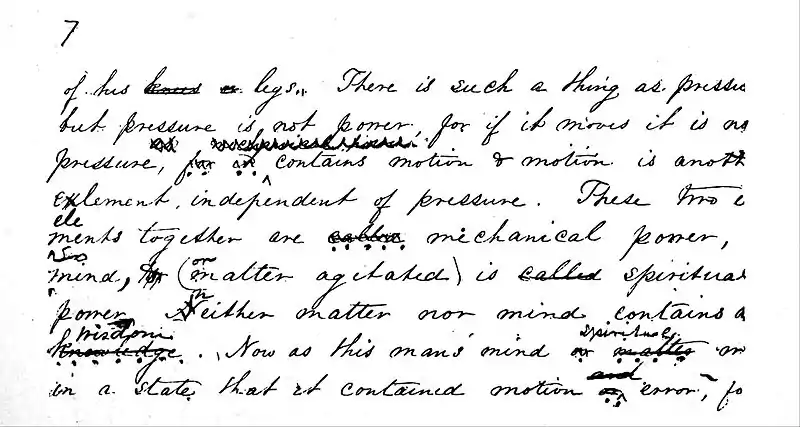 7
of his legs. There is such a thing as pressu
but pressure is not power, for if it moves it is no
pressure, for it contains motion & motion is anoth
Exlement, independent of pressure. These two e
ele
ments together are called mechanical power,
So
mind, (or matter agitated) is called spiritual
power. Neither matter nor mind contains a
wisdom spiritual
knowledge. Now as this man's mind or matter
and
in a state that it contained motion or error, fo